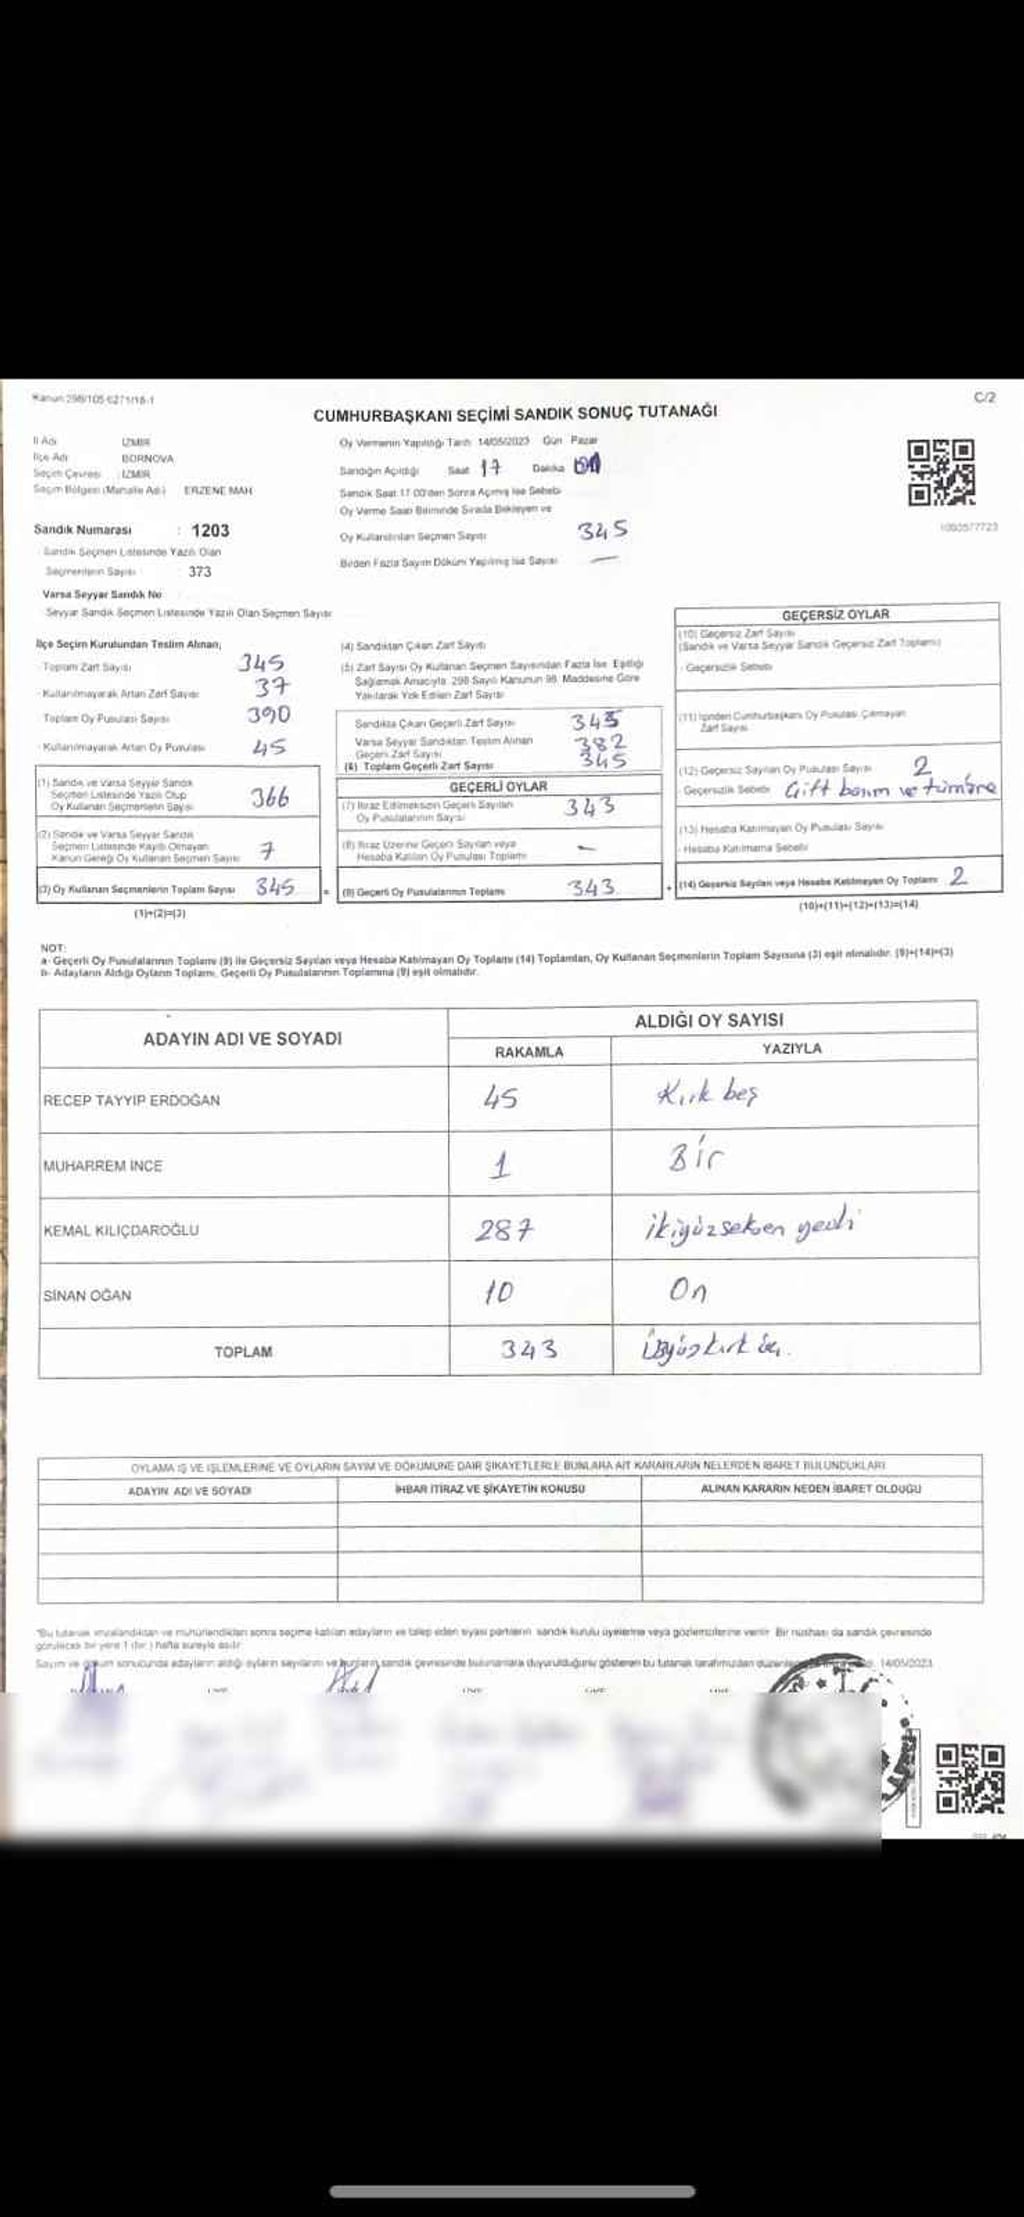 Kanun 298/105-6271/18-1
C/2
CUMHURBAŞKANI SEÇİMİ SANDIK SONUÇ TUTANAĞI
İl Adı : İZMİR
İlçe Adı : BORNOVA
Seçim Çevresi : İZMİR
Seçim Bölgesi (Mahalle Adı) : ERZENE MAH
Sandık Numarası : 1203
Sandık Seçmen Listesinde Yazılı Olan
Seçmenlerin Sayısı 373
Varsa Seyyar Sandık No
Seyyar Sandık Seçmen Listesinde Yazılı Olan Seçmen Sayısı
Oy Vermenin Yapıldığı Tarih 14/05/2023 Gün Pazar
Sandığın Açıldığı Saat 17 Dakika
Sandık Saat 17:00'den Sonra Açılmış İse Sebebi
Oy Verme Saati Bitiminde Sırada Bekleyen ve
Oy Kullandırılan Seçmen Sayısı 345
Birden Fazla Sayım Döküm Yapılmış İse Sayısı —
1000577723
İlçe Seçim Kurulundan Teslim Alınan;
Toplam Zarf Sayısı 345
- Kullanılmayarak Artan Zarf Sayısı 37
Toplam Oy Pusulası Sayısı 390
- Kullanılmayarak Artan Oy Pusulası 45
(1) Sandık ve Varsa Seyyar Sandık
Seçmen Listesinde Yazılı Olup
Oy Kullanan Seçmenlerin Sayısı 366
(2) Sandık ve Varsa Seyyar Sandık
Seçmen Listesinde Kayıtlı Olmayan
Kanun Gereği Oy Kullanan Seçmen Sayısı 7
(3) Oy Kullanan Seçmenlerin Toplam Sayısı 345
(1)+(2)=(3)
(4) Sandıktan Çıkan Zarf Sayısı
(5) Zarf Sayısı Oy Kullanan Seçmen Sayısından Fazla İse Eşitliği
Sağlamak Amacıyla 298 Sayılı Kanunun 98. Maddesine Göre
Yakılarak Yok Edilen Zarf Sayısı
Sandıkta Çıkan Geçerli Zarf Sayısı 345
Varsa Seyyar Sandıktan Teslim Alınan
Geçerli Zarf Sayısı 382
(6) Toplam Geçerli Zarf Sayısı 345
GEÇERLİ OYLAR
(7) İtiraz Edilmeksizin Geçerli Sayılan
Oy Pusulalarının Sayısı 343
(8) İtiraz Üzerine Geçerli Sayılan veya
Hesaba Katılan Oy Pusulası Toplamı -
= (9) Geçerli Oy Pusulalarının Toplamı 343
GEÇERSİZ OYLAR
(10) Geçersiz Zarf Sayısı
(Sandık ve Varsa Seyyar Sandık Geçersiz Zarf Toplamı)
- Geçersizlik Sebebi
(11) İçinden Cumhurbaşkanı Oy Pusulası Çıkmayan
Zarf Sayısı
(12) Geçersiz Sayılan Oy Pusulası Sayısı 2
- Geçersizlik Sebebi Çift basım ve tümüne
(13) Hesaba Katılmayan Oy Pusulası Sayısı
- Hesaba Katılmama Sebebi
+ (14) Geçersiz Sayılan veya Hesaba Katılmayan Oy Toplamı 2
(10)+(11)+(12)+(13)=(14)
NOT:
a- Geçerli Oy Pusulalarının Toplamı (9) ile Geçersiz Sayılan veya Hesaba Katılmayan Oy Toplamı (14) Toplamları, Oy Kullanan Seçmenlerin Toplam Sayısına (3) eşit olmalıdır. (9)+(14)=(3)
b- Adayların Aldığı Oyların Toplamı, Geçerli Oy Pusulalarının Toplamına (9) eşit olmalıdır.
ADAYIN ADI VE SOYADI
ALDIĞI OY SAYISI
RAKAMLA YAZIYLA
RECEP TAYYIP ERDOĞAN 45 Kırk beş
MUHARREM İNCE 1 Bir
KEMAL KILIÇDAROĞLU 287 ikiyüzseksen yedi
SİNAN OĞAN 10 On
TOPLAM 343 Üçyüzkırk üç.
OYLAMA İŞ VE İŞLEMLERİNE VE OYLARIN SAYIM VE DÖKÜMÜNE DAİR ŞİKAYETLERLE BUNLARA AİT KARARLARIN NELERDEN İBARET BULUNDUKLARI
ADAYIN ADI VE SOYADI İHBAR İTİRAZ VE ŞİKAYETİN KONUSU ALINAN KARARIN NEDEN İBARET OLDUĞU
*Bu tutanak imzalandıktan ve mühürlendikten sonra seçime katılan adayların ve talep eden siyasi partilerin sandık kurulu üyelerine veya gözlemcilerine verilir. Bir nüshası da sandık çevresinde
görülecek bir yere 1 (bir) hafta süreyle asılır.
Sayım ve döküm sonucunda adayların aldığı oyların sayılarını ve bunların sandık çevresinde bulunanlara duyurulduğunu gösteren bu tutanak tarafımızdan 14/05/2023